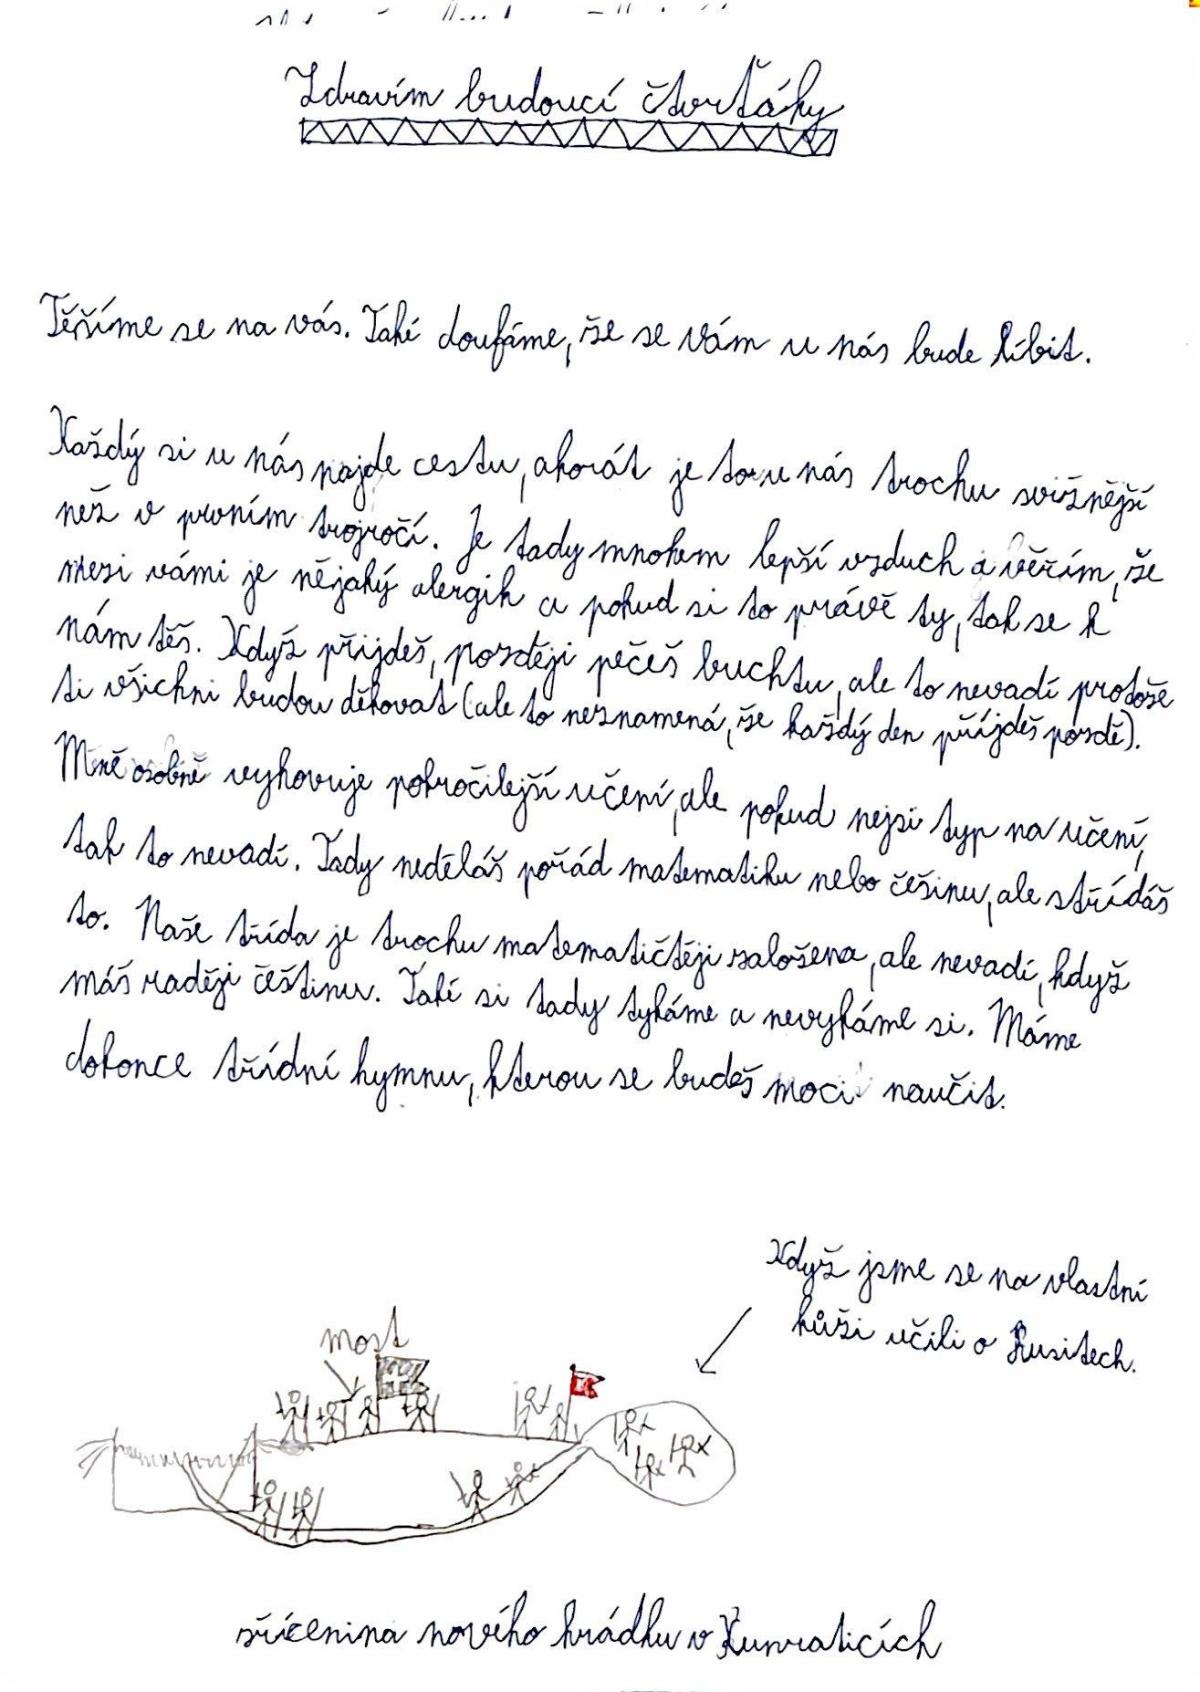 Zdravím budoucí čtvrťáky
Těšíme se na vás. Také doufáme, že se vám u nás bude líbit.
Každý si u nás najde cestu, akorát je to u nás trochu svižnější
než v prvním trojročí. Je tady mnohem lepší vzduch a věřím, že
mezi vámi je nějaký alergik a pokud si to právě ty, tak se k
nám těš. Když přijdeš, později pečeš buchtu, ale to nevadí protože
ti všichni budou děkovat (ale to neznamená, že každý den příjdeš pozdě).
Mně osobně vyhovuje pokročilejší učení, ale pokud nejsi typ na učení,
tak to nevadí. Tady neděláš pořád matematiku nebo češinu, ale střídáš
to. Naše třída je trochu matematičtěji založena, ale nevadí, když
máš raději češtinu. Také si tady tykáme a nevykáme si. Máme
dokonce třídní hymnu, kterou se budeš moci naučit.
Když jsme se na vlastní
kůži učili o Husitech.
most
zřícenina nového hrádku v Kunraticích